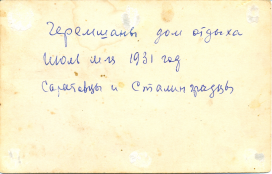 Черемшаны, дом отдыха
Июль м-ц 1931 год
Саратовцы и Сталинградцы